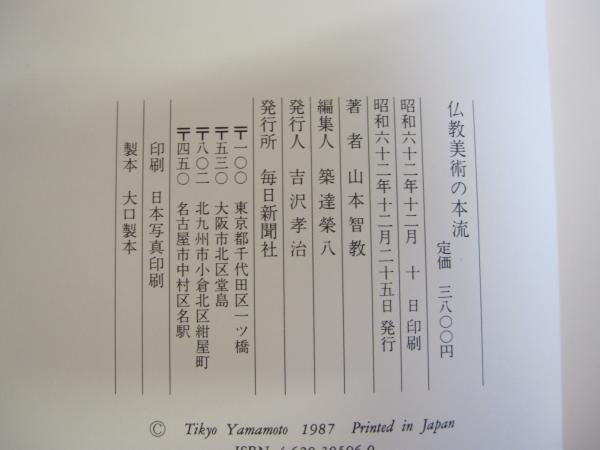 仏教美術の本流
定価 三八〇〇円
昭和六十二年十二月 十 日 印刷
昭和六十二年十二月二十五日 発行
著 者 山本智教
編集人 築達榮八
発行人 吉沢孝治
発行所 毎日新聞社
〒一〇〇 東京都千代田区一ツ橋
〒五三〇 大阪市北区堂島
〒八〇二 北九州市小倉北区紺屋町
〒四五〇 名古屋市中村区名駅
印刷 日本写真印刷
製本 大口製本
© Tikyo Yamamoto 1987 Printed in Japan